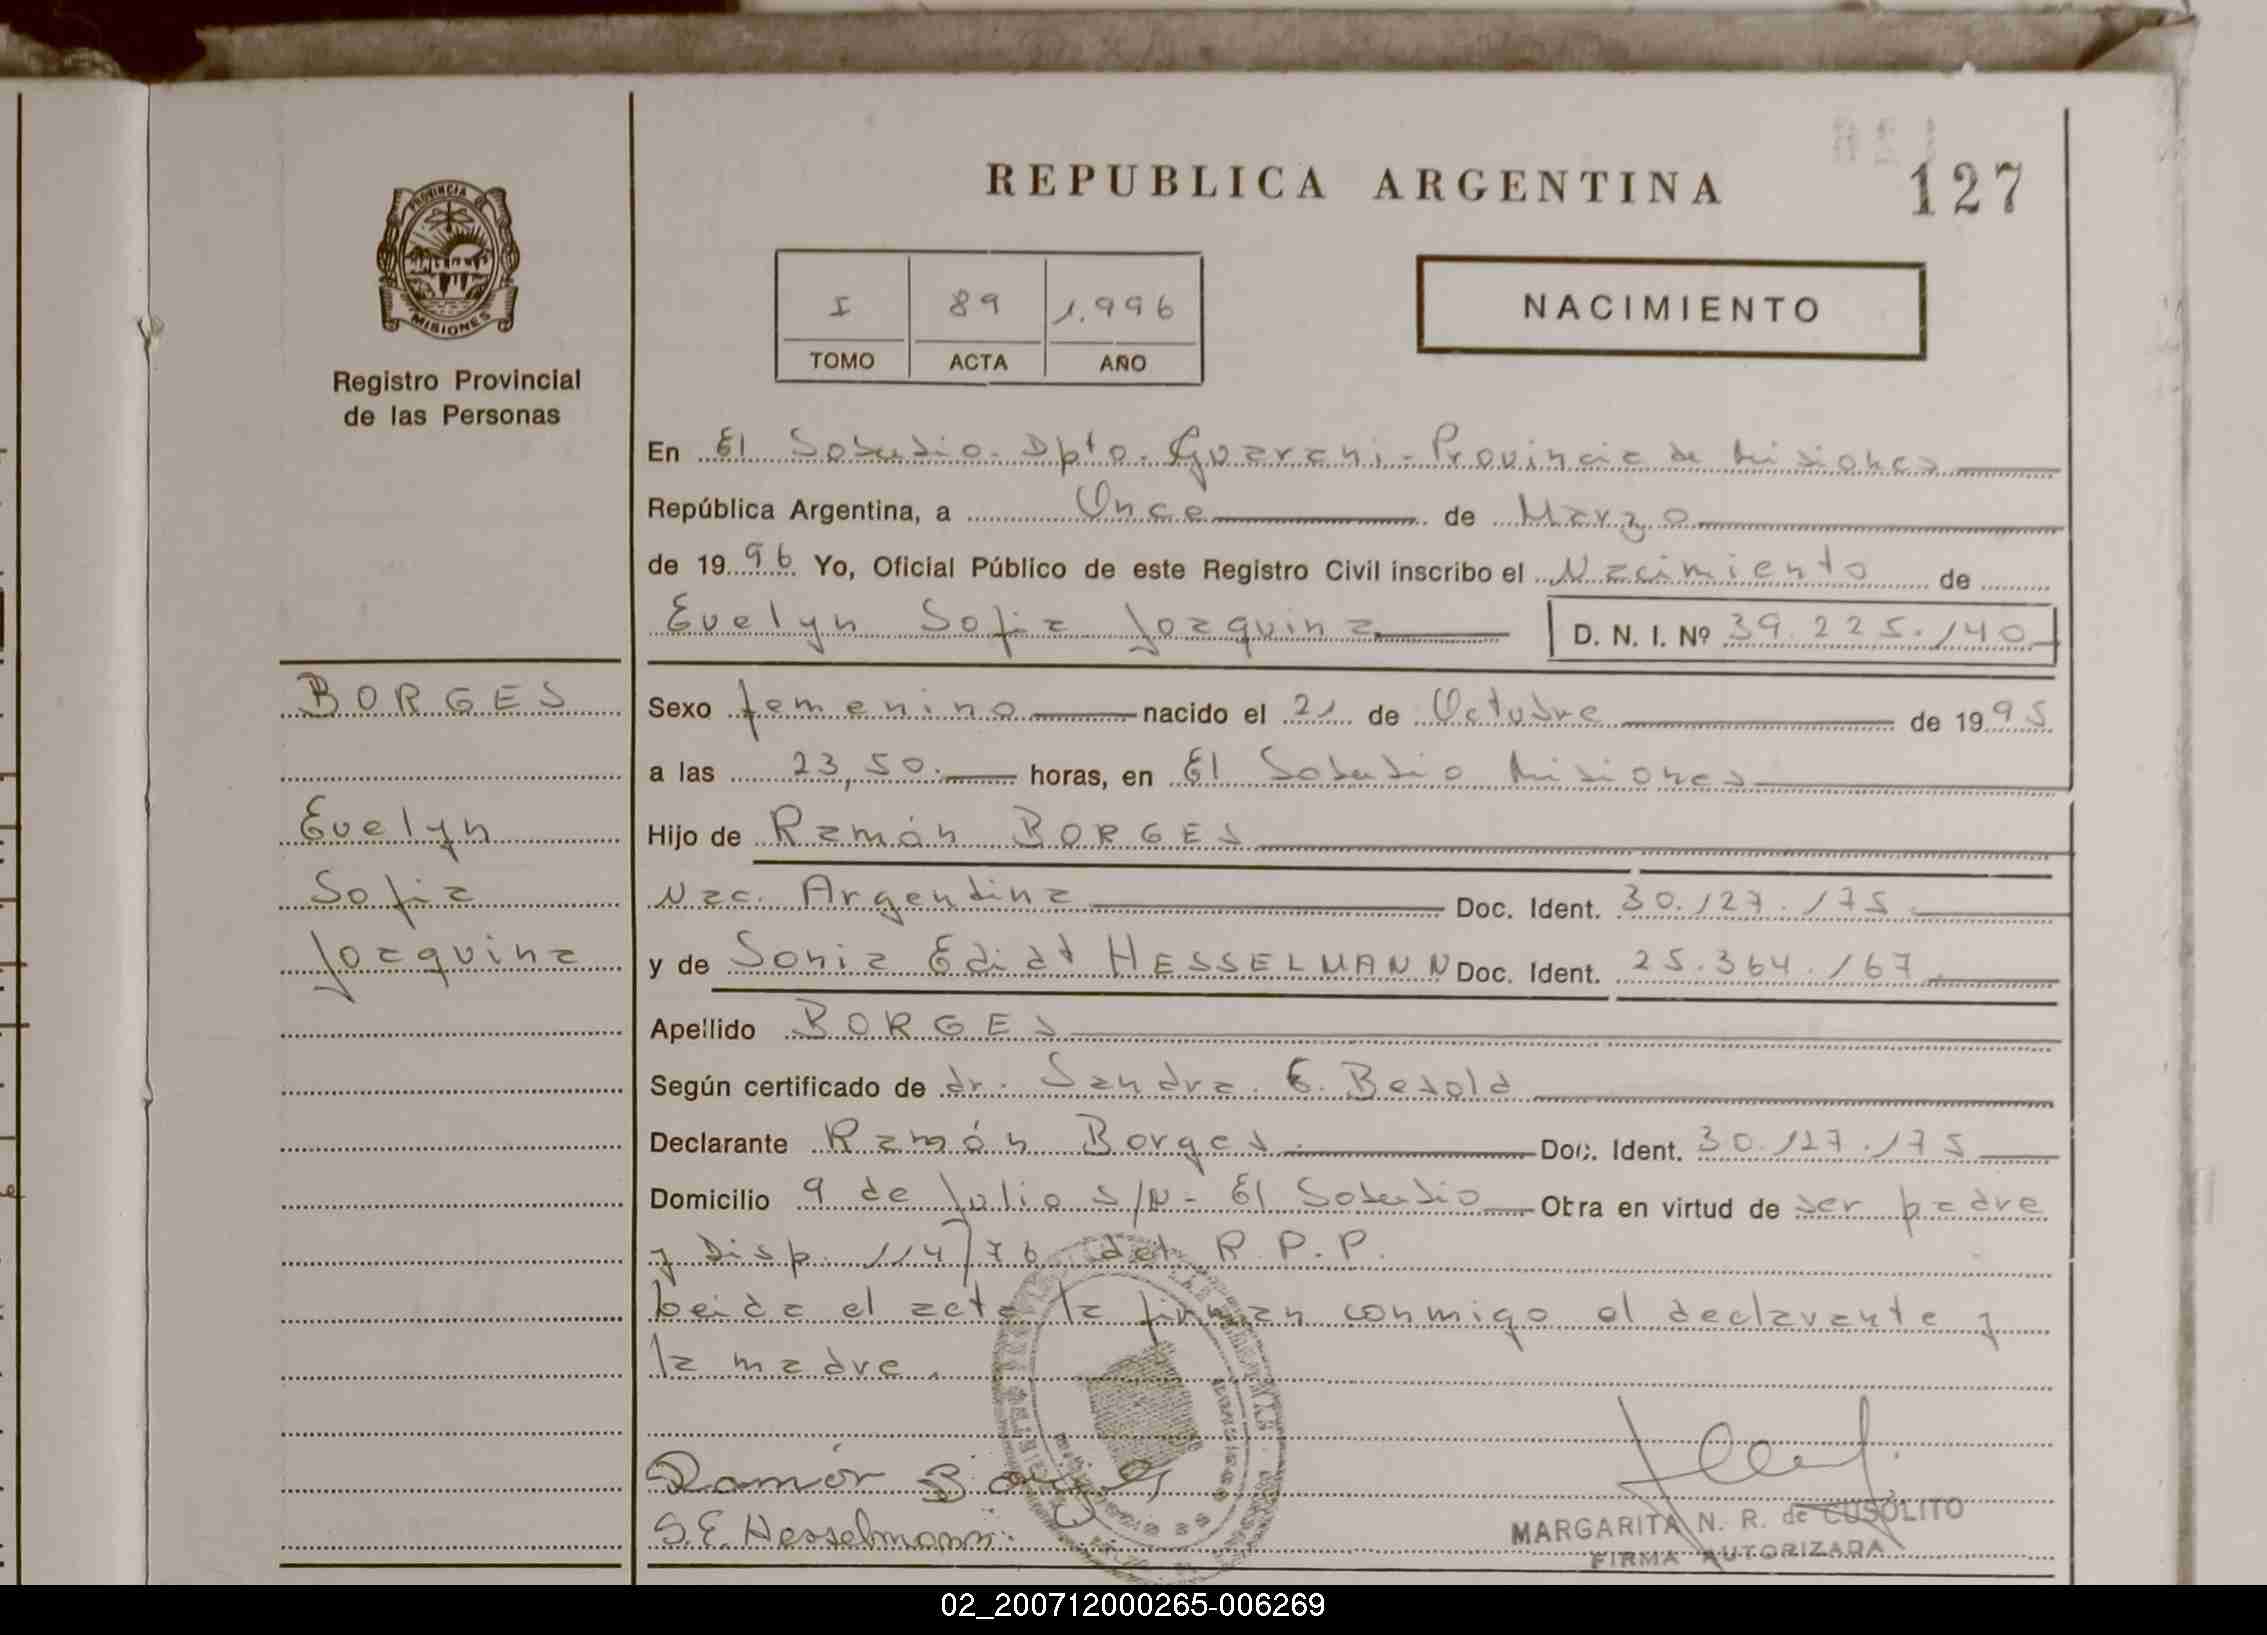 PROVINCIA DE
MISIONES
Registro Provincial
de las Personas
BORGES
Evelyn
Sofia
Joaquina
REPUBLICA ARGENTINA
127
I 89 1.996
TOMO ACTA AÑO
NACIMIENTO
En El Soberbio - Dpto. Guarani - Provincia de Misiones
República Argentina, a Once de Marzo
de 1996 Yo, Oficial Público de este Registro Civil inscribo el Nacimiento de
Evelyn Sofia Joaquina D. N. I. Nº 39.225.140
Sexo femenino nacido el 21 de Octubre de 1995
a las 23,50. horas, en El Soberbio Misiones
Hijo de Ramón BORGES
Nac. Argentina Doc. Ident. 30.127.175
y de Sonia Edidt HESSELMANN Doc. Ident. 25.364.167
Apellido BORGES
Según certificado de dr. Sandra E. Besold
Declarante Ramón Borges Doc. Ident. 30.127.175
Domicilio 9 de Julio S/N - El Soberbio Obra en virtud de ser padre
y Disp. 114/76 del R.P.P.
Leida el acta la firman conmigo el declarante y
la madre.
Ramón Borges
S.E. Hesselmann
MARGARITA N. R. de CUSOLITO
FIRMA AUTORIZADA
02_200712000265-006269